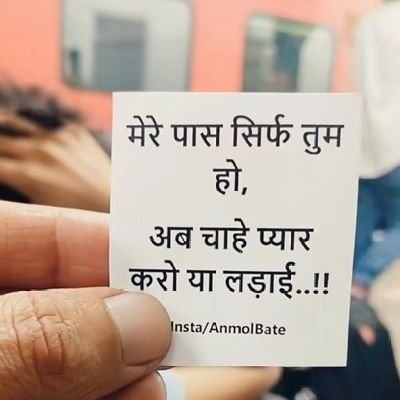 मेरे पास सिर्फ तुम
हो,
अब चाहे प्यार
करो या लड़ाई..!!
Insta/AnmolBate